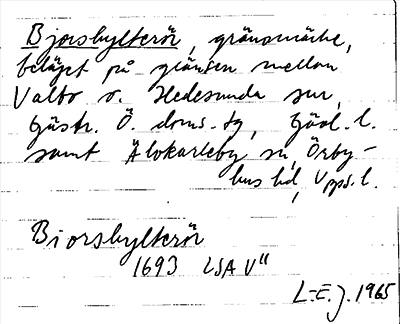 Bjorshylterör, gränsmärke,
beläget på gränsen mellan
Valbo o. Hedesunda snr,
Gästr. Ö. doms.-tg, Gävl. l.
samt Älvkarleby sn, Örby-
hus hd, Upps. l.
Biorshylterör
1693 LSA V"
L-E. J. 1965